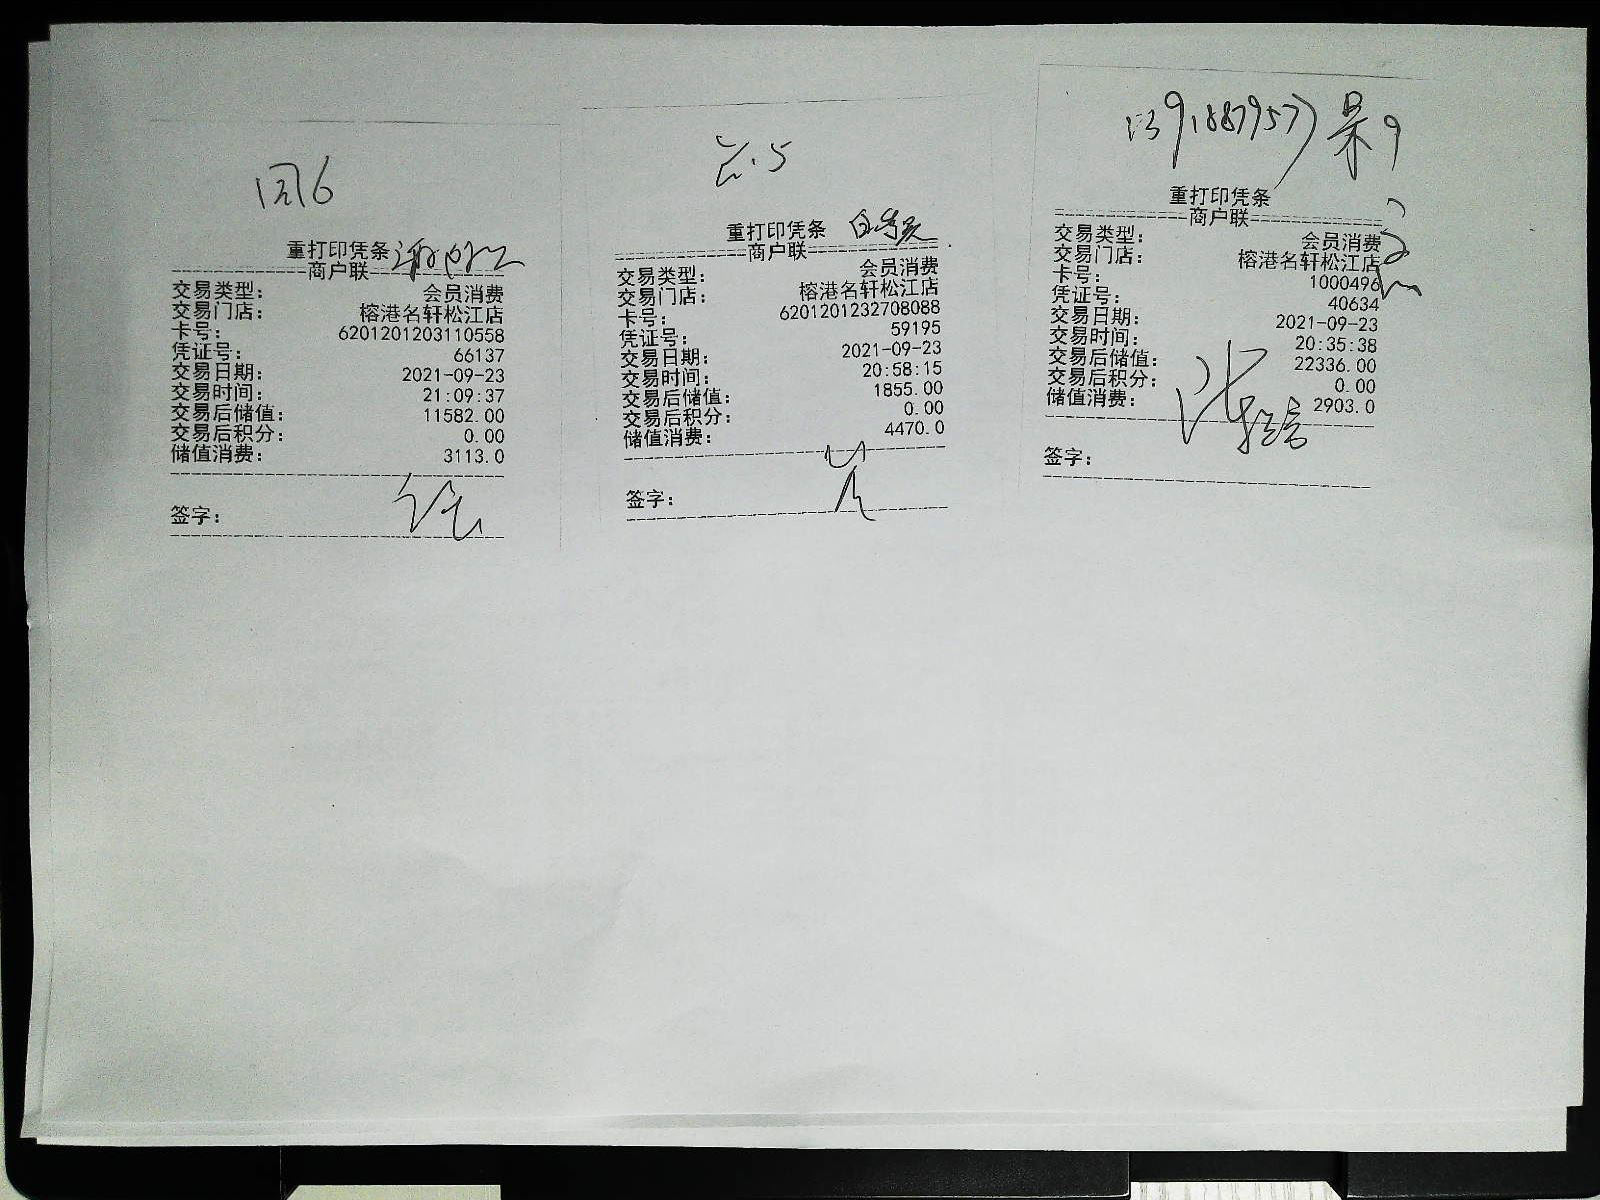 重打印凭条
商户联
交易类型： 会员消费
交易门店： 榕港名轩松江店
卡号： 6201201203110558
凭证号： 66137
交易日期： 2021-09-23
交易时间： 21:09:37
交易后储值： 11582.00
交易后积分： 0.00
储值消费： 3113.0
签字：
重打印凭条
商户联
交易类型： 会员消费
交易门店： 榕港名轩松江店
卡号： 6201201232708088
凭证号： 59195
交易日期： 2021-09-23
交易时间： 20:58:15
交易后储值： 1855.00
交易后积分： 0.00
储值消费： 4470.0
签字：
重打印凭条
商户联
交易类型： 会员消费
交易门店： 榕港名轩松江店
卡号： 1000496
凭证号： 40634
交易日期： 2021-09-23
交易时间： 20:35:38
交易后储值： 22336.00
交易后积分： 0.00
储值消费： 2903.0
签字：